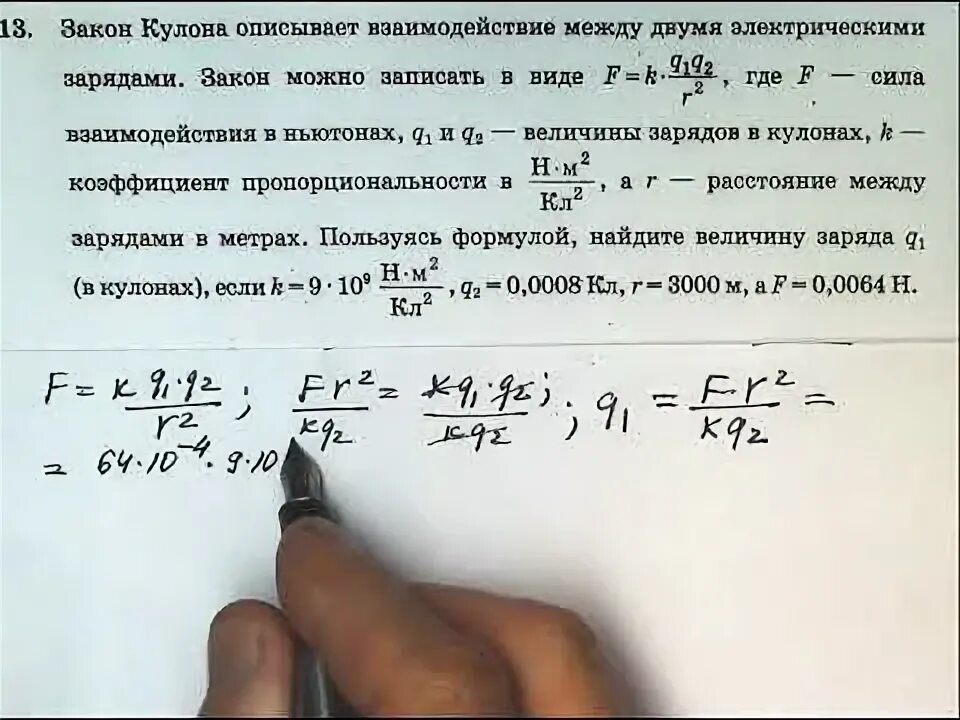 13. Закон Кулона описывает взаимодействие между двумя электрическими
зарядами. Закон можно записать в виде F = k · q₁q₂/r², где F — сила
взаимодействия в ньютонах, q₁ и q₂ — величины зарядов в кулонах, k —
коэффициент пропорциональности в Н·м²/Кл², а r — расстояние между
зарядами в метрах. Пользуясь формулой, найдите величину заряда q₁
(в кулонах), если k = 9 · 10⁹ Н·м²/Кл², q₂ = 0,0008 Кл, r = 3000 м, а F = 0,0064 Н.
F = к q₁·q₂/r² ; Fr²/кq₂ = кq₁·q₂/кq₂ ; q₁ = F·r²/кq₂ =
= 64·10⁻⁴·9·10